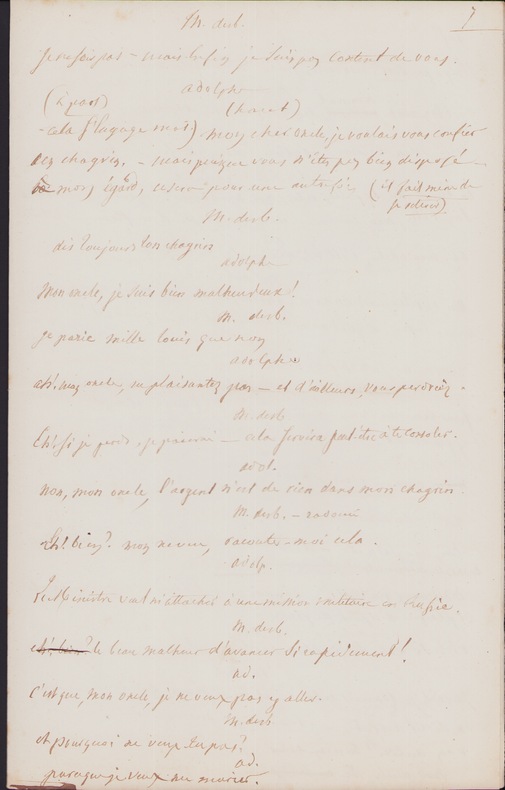 7
M. derb.
je ne sais pas – mais enfin je suis peu content de vous.
adolphe
(à part) (haut)
– cela s'engage mal.) mon cher oncle, je voulais vous confier
mes chagrins, – mais puisque vous n'êtes pas bien disposé
à mon égard, ce sera pour une autre fois (il fait mine de
se retirer)
M. derb.
dis toujours tes chagrins
adolphe
Mon oncle, je suis bien malheureux!
M. derb.
je parie mille louis que non
adolphe
ah! mon oncle, ne plaisantez pas – et d'ailleurs, vous perdriez.
M. derb
Eh! si je perds, je paierai – cela servira peut-être à te consoler.
adol.
non, mon oncle, l'argent n'est de rien dans mon chagrin.
M. derb. –
Eh! bien? mon neveu, racontes-moi cela.
adolp.
le Ministre veut m'attacher à une mission militaire en
M. derb.
eh! bien? le beau malheur d'avancer si rapidement!
ad.
c'est que, mon oncle, je ne veux pas y aller.
M. derb
et pourquoi ne veux tu pas?
ad.
parceque je veux me marier.